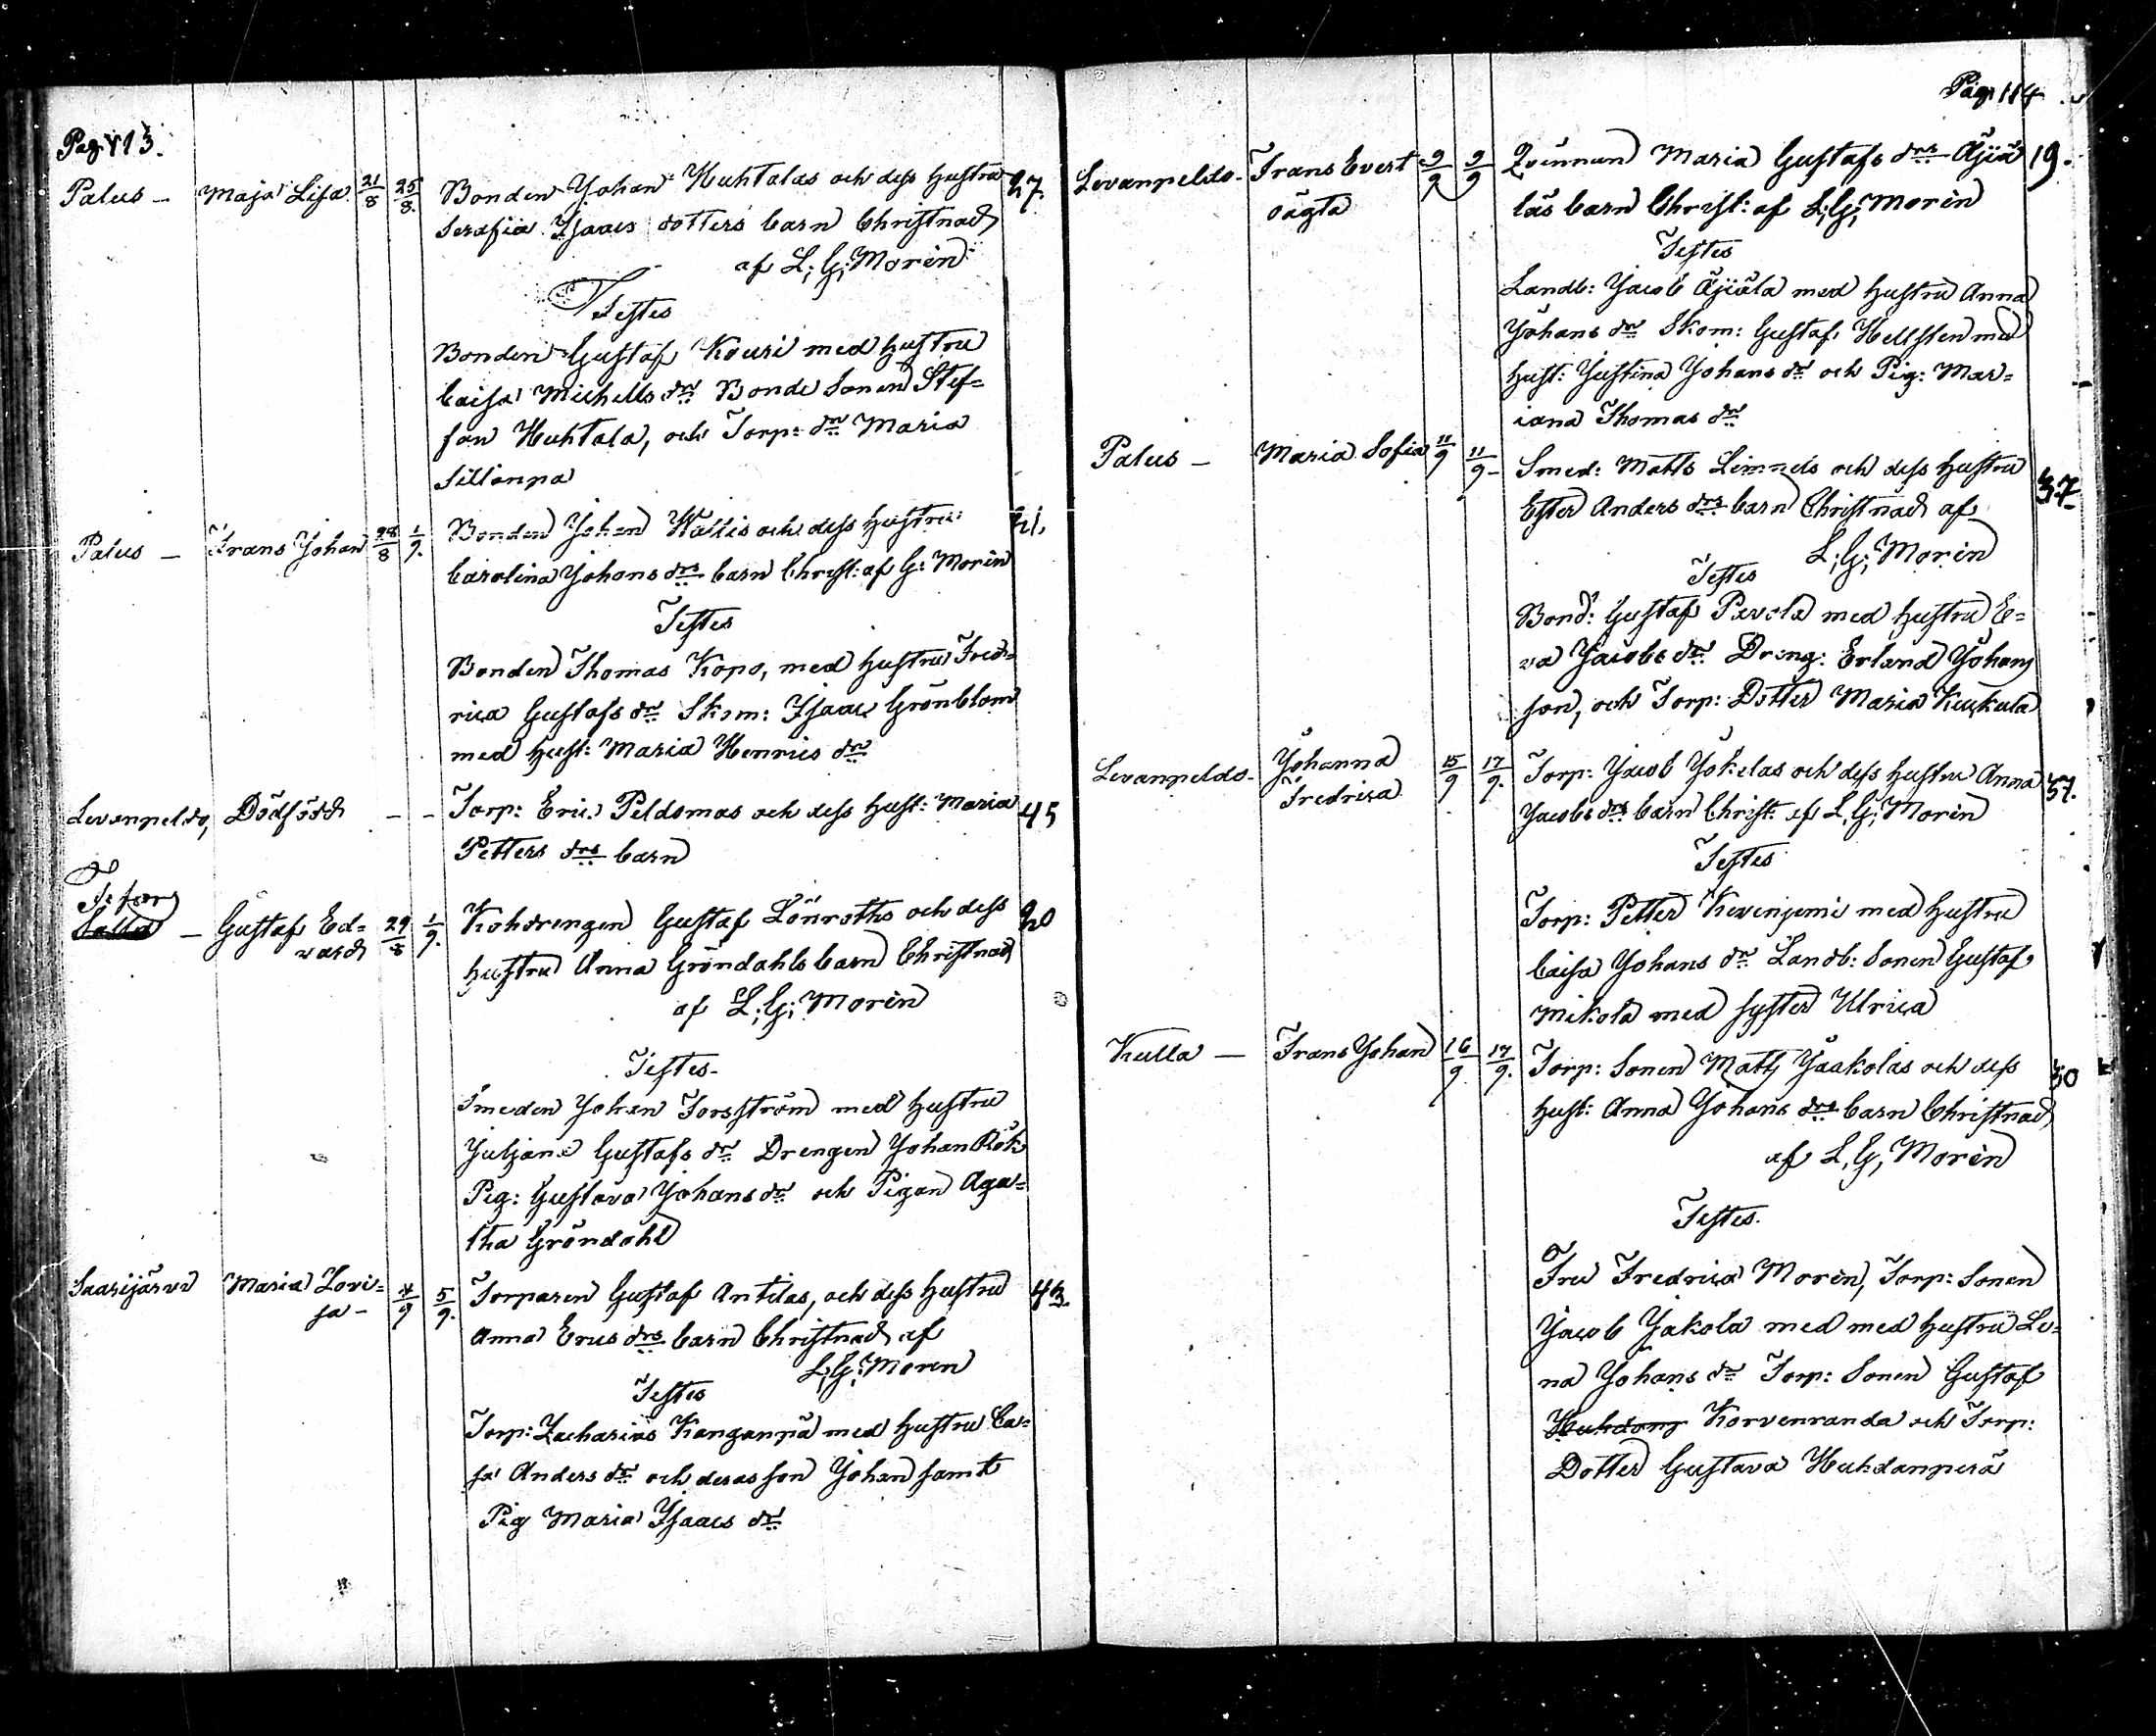 Pag. 113.
Palus – Maja Lisa 21/8 25/8. Bonden Johan Huhtalas och dess hustru 27.
Serafia Isaacs dotters barn Christnadt
af L: G: Morén
Testes
Bonden Gustaf Kouri med hustru
Caisa Michells dr Bonde Sonen Stef=
fan Huhtala, och Torp: dr Maria
Sillanpä
Palus – Frans Johan 28/8 1/9. Bonden Johan Wallis och dess hustru 21.
Carolina Johans drs barn Christ: af G: Morén
Testes
Bonden Thomas Kopo, med hustru Fred=
rica Gustafs dr Skom: Isaac Grönblom
med hust: Maria Henrics dr
Levanpeldo, Dödfödt – – Torp: Eric Peldomas och dess hust: Maria 45
Petters drs barn
– Gustaf Ed= 29/8 1/9. Kohdrengen Gustaf Lönroths och dess 20
vardt hustru Anna Gröndahls barn Christnadt
af L: G: Morén
Testes.
Smeden Johan Forsström med hustru
Juljana Gustafs dr Drengen Johan Rök
Pig: Gustava Johans dr och Pigan Aga=
tha Gröndahl
Saarijärvi Maria Lovi= 4/9 5/9. Torparen Gustaf Antilas, och dess hustru 43.
sa – Anna Erics drs barn Christnadt af
L: G: Morén
Testes
Torp: Zacharias Kanganpä med hustru Ca=
sa Anders dr och deras son Johan samt
Pig Maria Isaacs dr
Pag. 114
Levanpeldo – Frans Evert 9/9 9/9 Qvinnan Maria Gustafs drs Äjiä 19.
oägta läs barn Christ: af L: G: Morén
Testes
Landb: Jacob Äjiälä med hustru Anna
Johans dr Skom: Gustaf Hellsten med
hust: Justina Johans dr och Pig: Mar=
iana Thomas dr
Palus – Maria Sofia 11/9 11/9 – Smed: Matts Limnels och dess hustru 37.
Ester Anders drs barn Christnadt af
L: G: Morén
Testes
Bond: Gustaf Pavola med hustru E=
va Jacobs dr Dreng: Erland Johans
son, och Torp: Dotter Maria Kuukula
Levanpeldo – Johanna 15/9 17/9. Torp: Jacob Jokelas och dess hustru Anna 57.
Fredrica Jacobs drs barn Christ: af L. G: Morén
Testes
Torp: Petter Kivenjemi med hustru
Caisa Johans dr Landb: Sonen Gustaf
Mikola med syster Ulrica
Kulla – Frans Johan 16/9 17/9. Torp: Sonen Matts Jaakolas och dess 30
hust: Anna Johans drs barn Christnadt
af L, G, Morén
Testes.
Fru Fredrica Morén, Torp: Sonen
Jacob Jakola med med hustru Le=
na Johans dr Torp: Sonen Gustaf
Korvenranda och Torp:
Dotter Gustava Huhdanperä